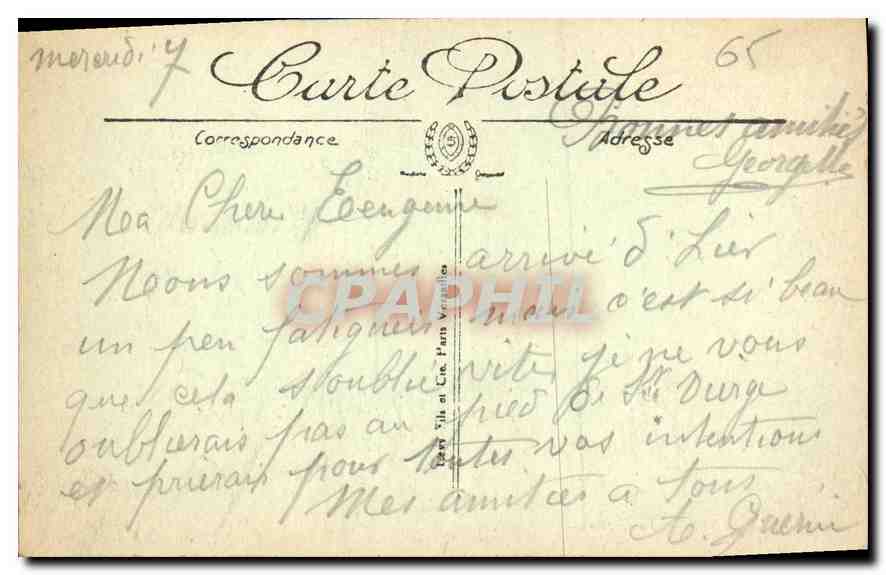 mercredi 7
65
Carte Postale
Correspondance
Adresse
Bonnes amitiés
Georgette
Ma Chere Eeugenie
Nous sommes arrivé d'hier
un peu fatigueis mais c'est si beau
que cela s'oublie vite, je ne vous
oublierais pas au pied de Ste Vierge
et prierais pour toutes vos intentions
Mes amitiées a tous
A. Guerin
Lévy Fils et Cie, Paris Versailles
CPAPHIL